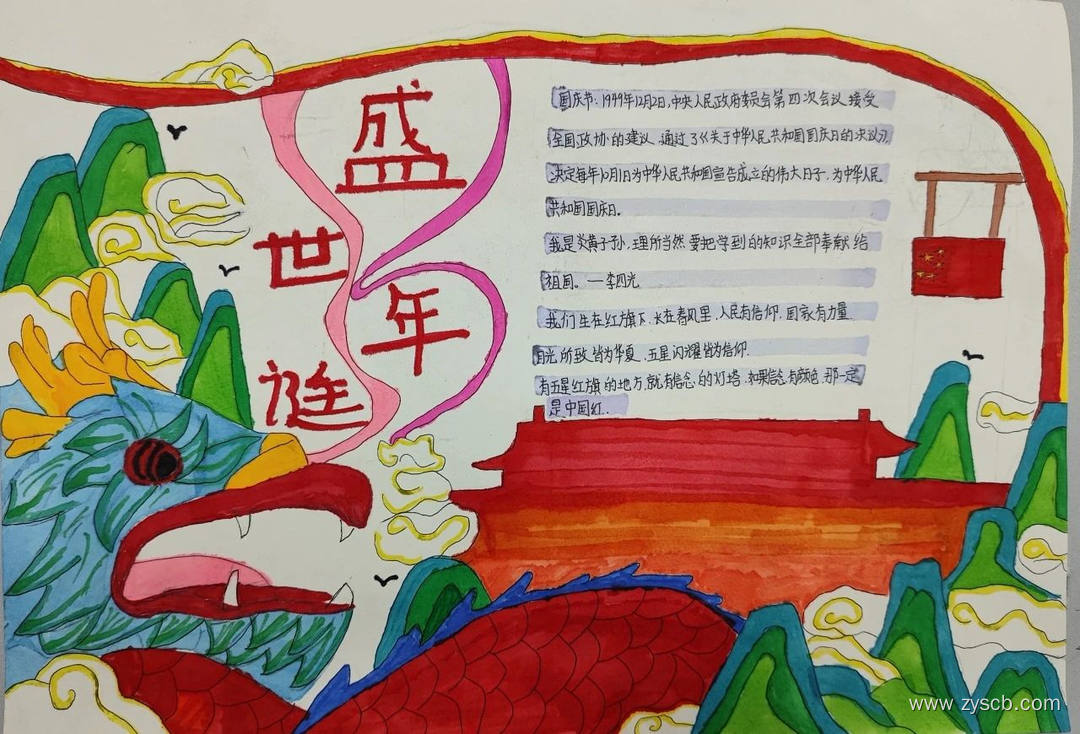 盛
世
年
诞
国庆节:1999年12月2日,中央人民政府委员会第四次会议接受
全国政协的建议,通过了《关于中华人民共和国国庆日的决议》,
决定每年10月1日为中华人民共和国宣告成立的伟大日子,为中华人民
共和国国庆日。
我是炎黄子孙,理所当然要把学到的知识全部奉献给
祖国。—李四光
我们生在红旗下,长在春风里,人民有信仰,国家有力量
目光所致皆为华夏,五星闪耀皆为信仰.
有五星红旗的地方,就有信念的灯塔.如果信念有颜色,那一定
是中国红.
www.zyscb.com